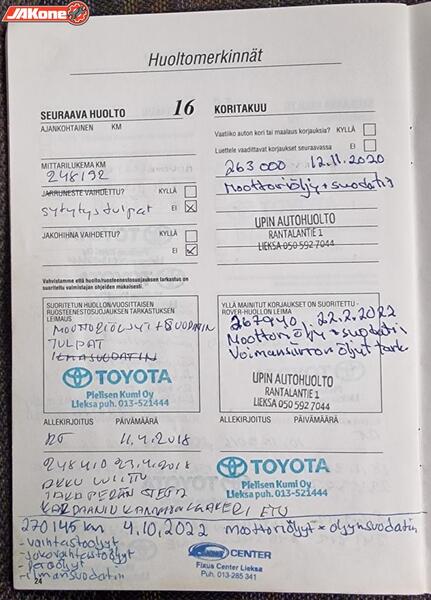 JAKone
Huoltomerkinnät
SEURAAVA HUOLTO 16
AJANKOHTAINEN KM
MITTARILUKEMA KM
248192
JARRUNESTE VAIHDETTU? KYLLÄ
sytytystulpat EI
JAKOHIHNA VAIHDETTU? KYLLÄ
EI
Vahvistamme että huolto/ruosteenestosuojauksen tarkastus on
suoritettu valmistajan ohjeiden mukaisesti.
SUORITETUN HUOLLON/VUOSITTAISEN
RUOSTEENESTOSUOJAUKSEN TARKASTUKSEN
LEIMAUS
MOOTTORIÖLJYT + SUODATIN
TULPAT
ILMASUODATIN
TOYOTA
Pielisen Kumi Oy
Lieksa puh. 013-521444
ALLEKIRJOITUS PÄIVÄMÄÄRÄ
11.4.2018
248410 23.4.2018
AKKU
ETU
KORITAKUU
Vaatiiko auton kori tai maalaus korjauksia? KYLLÄ
Luettele vaadittavat korjaukset seuraavassa EI
263 000 12.11.2020
Moottoriöljy + suodatin
UPIN AUTOHUOLTO
RANTALANTIE 1
LIEKSA 050 592 7044
YLLÄ MAINITUT KORJAUKSET ON SUORITETTU -
ROVER-HUOLLON LEIMA
267940 22.2.2022
Moottoriöljy + suodatin
Voimansiirron öljyt tark
UPIN AUTOHUOLTO
RANTALANTIE 1
LIEKSA 050 592 7044
ALLEKIRJOITUS PÄIVÄMÄÄRÄ
TOYOTA
Pielisen Kumi Oy
Lieksa puh. 013-521444
270145 km 4.10.2022 moottoriöljyt + öljynsuodatin
- vaihtastoöljyt
- jakovaihtastoöljyt
- peräöljyt
- ilmansuodatin
CENTER
Fixus Center Lieksa
Puh. 013-285 341
24